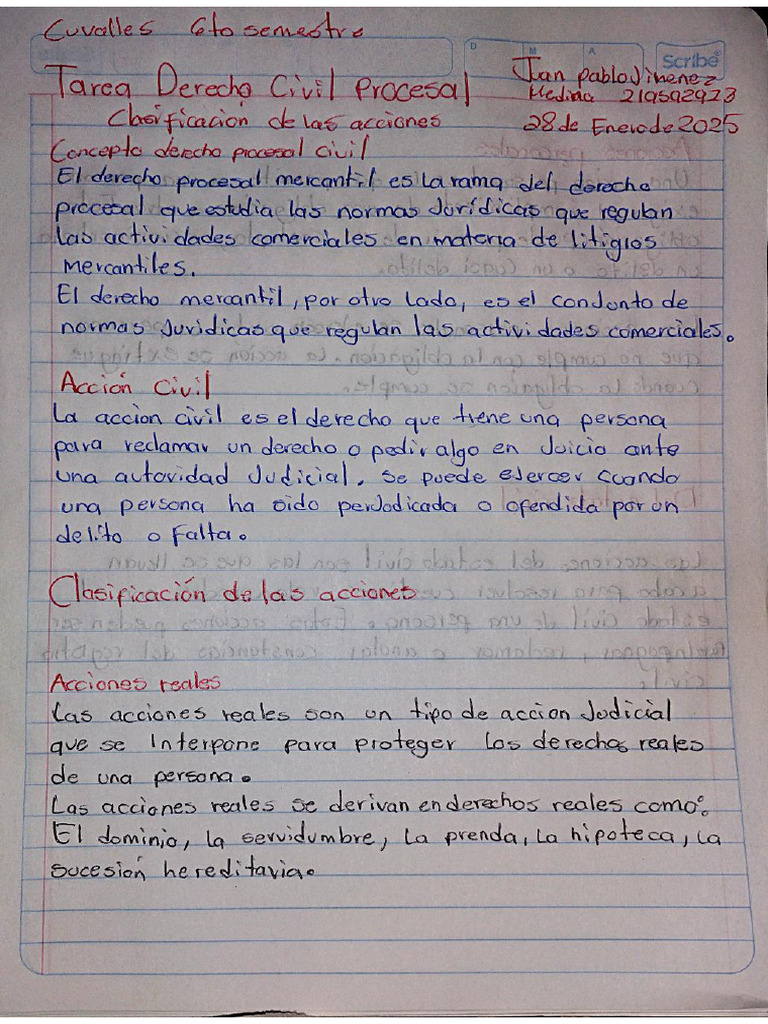 Cuvalles 6to semestre
D M A Scribe
Tarea Derecho Civil Procesal
Juan pablo Jimenez
Medina 219592923
Clasificación de las acciones
28 de Enero de 2025
Concepto derecho procesal civil
El derecho procesal mercantil es la rama del derecho
procesal que estudia las normas Jurídicas que regulan
las actividades comerciales en materia de litigios
mercantiles.
El derecho mercantil, por otro lado, es el conjunto de
normas Juridicas que regulan las actividades comerciales.
Acción Civil
La accion civil es el derecho que tiene una persona
para reclamar un derecho o pedir algo en Juicio ante
una autoridad Judicial. Se puede ejercer cuando
una persona ha sido perjudicada o ofendida por un
delito o falta.
Clasificación de las acciones
Acciones reales
Las acciones reales son un tipo de accion Judicial
que se Interpone para proteger los derechos reales
de una persona.
Las acciones reales se derivan en derechos reales como:
El dominio, la servidumbre, la prenda, la hipoteca, la
sucesión hereditaria.